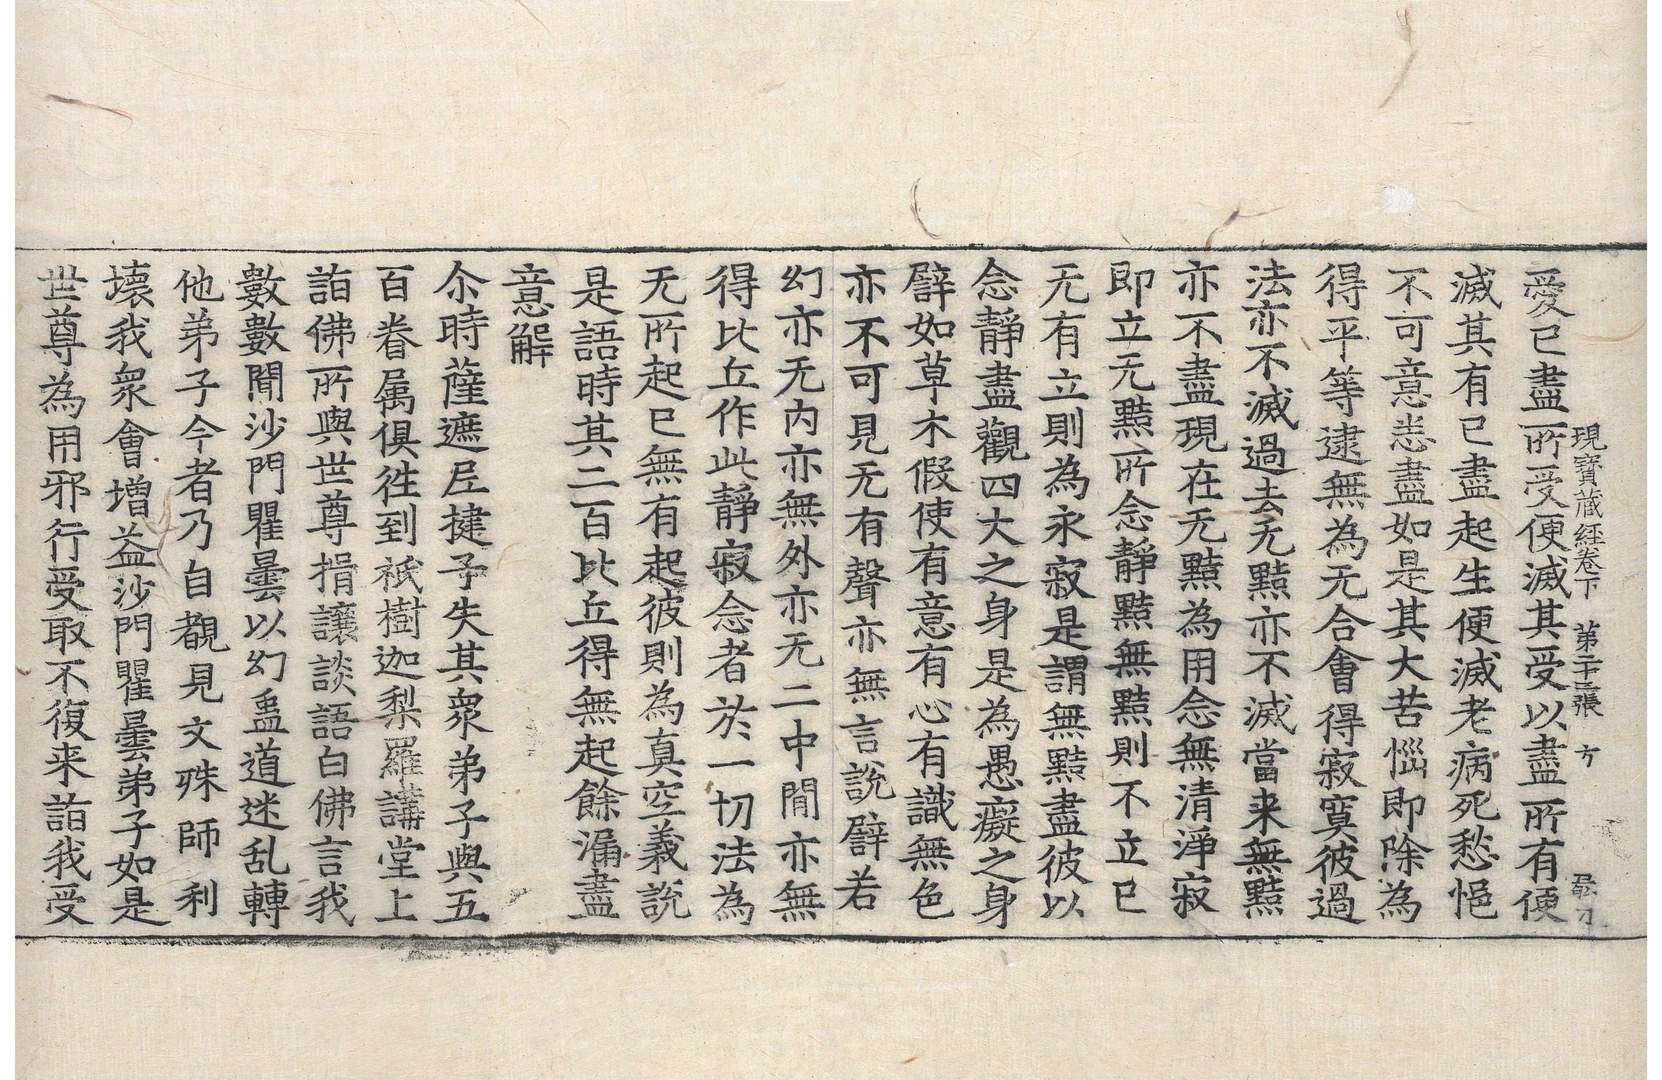 現寶蔵經卷下 第二十二張 方
愛已盡所受便滅其受以盡所有便
滅其有已盡起生便滅老病死愁悒
不可意恚盡如是其大苦惱即除為
得平等逮無為无合會得寂寞彼過
法亦不滅過去无黠亦不滅當来無黠
亦不盡現在无黠為用念無清淨寂
即立无黠所念靜黠無黠則不立已
无有立則為永寂是謂無黠盡彼以
念靜盡觀四大之身是為愚癡之身
譬如草木假使有意有心有識無色
亦不可見无有聲亦無言說譬若
幻亦无内亦無外亦无二中間亦無
得比丘作此靜寂念者於一切法為
无所起已無有起彼則為真空義説
是語時其二百比丘得無起餘漏盡
意解
尒時薩遮尼揵子失其衆弟子與五
百眷属俱徃到祇樹迦梨羅講堂上
詣佛所與世尊揖讓談語白佛言我
數數聞沙門瞿曇以幻蠱道迷乱轉
他弟子今者乃自覩見文殊師利
壊我衆會増益沙門瞿曇弟子如是
世尊為用邪行受取不復来詣我受